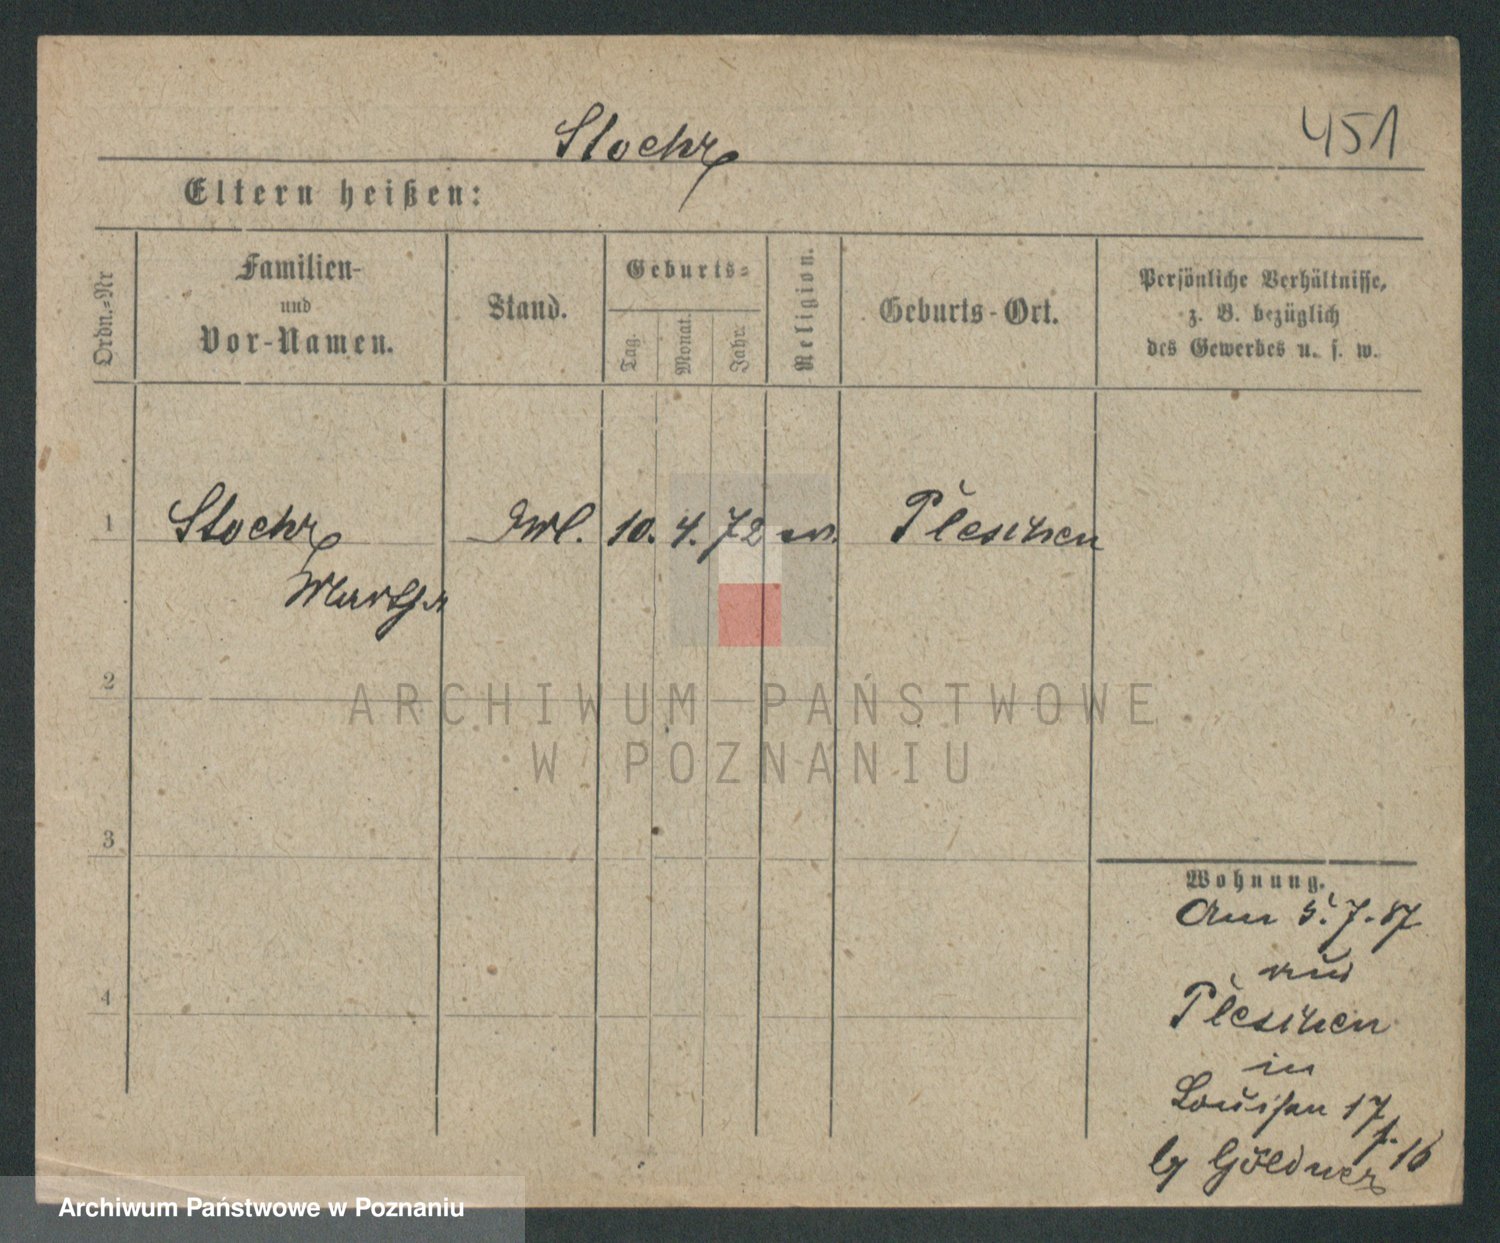 Stoehr
451
Eltern heißen:
Ordn.-Nr
Familien-
und
Vor-Namen.
Stand.
Geburts-
Tag.
Monat.
Jahr.
Religion.
Geburts-Ort.
Persönliche Verhältnisse,
z. B. bezüglich
des Gewerbes u. s. w.
1 Stoehr 10. 4. 72 ev. Pleschen
Martha
2
ARCHIWUM PAŃSTWOWE
W POZNANIU
3
Wohnung.
Am 5. 7. 87
aus
4
Pleschen
in
Louisen 17
16
Göldner
Archiwum Państwowe w Poznaniu